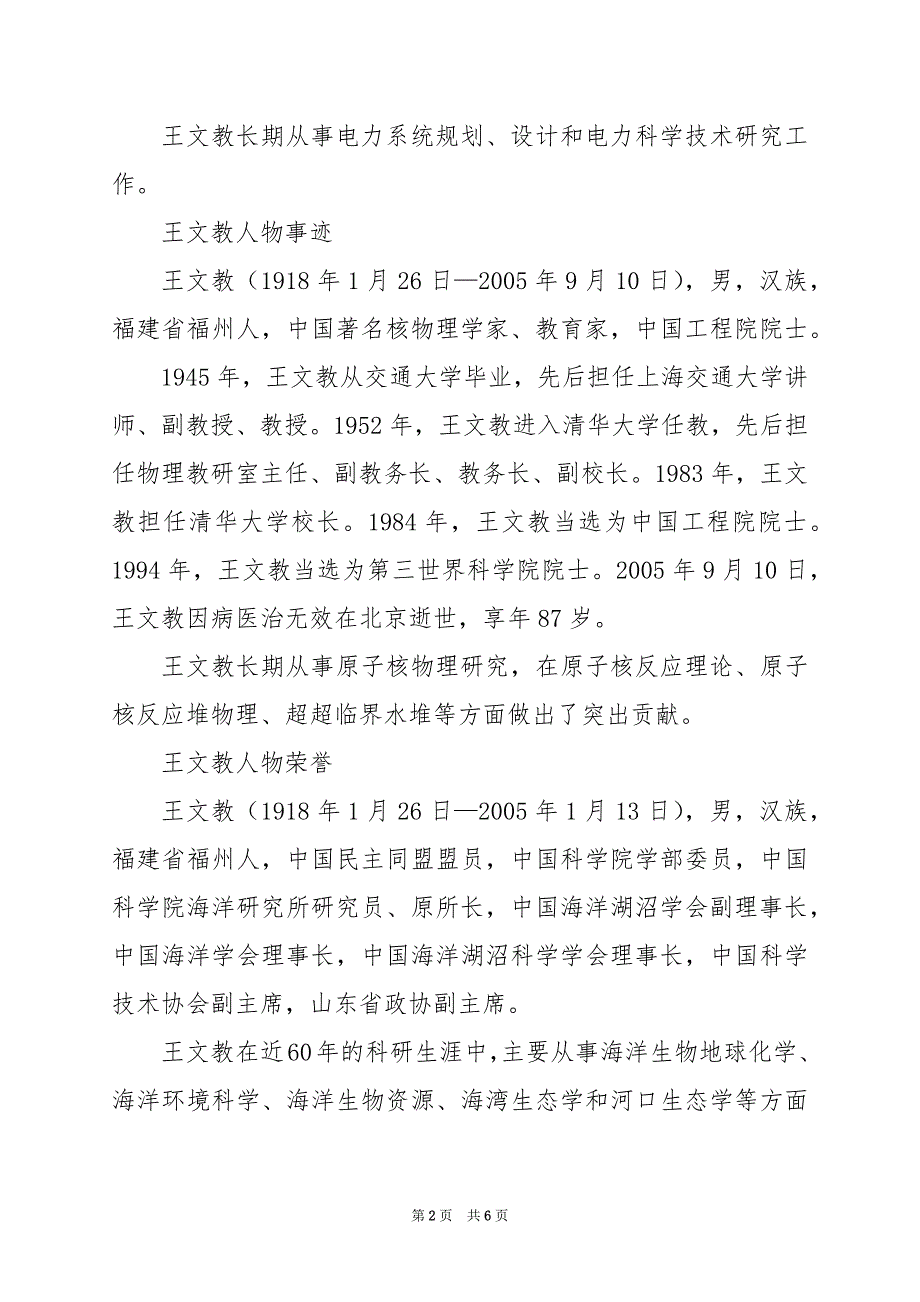 王文教长期从事电力系统规划、设计和电力科学技术研究工
作。
王文教人物事迹
王文教（1918 年 1 月 26 日—2005 年 9 月 10 日），男，汉族，
福建省福州人，中国著名核物理学家、教育家，中国工程院院士。
1945 年，王文教从交通大学毕业，先后担任上海交通大学讲
师、副教授、教授。1952 年，王文教进入清华大学任教，先后担
任物理教研室主任、副教务长、教务长、副校长。1983 年，王文
教担任清华大学校长。1984 年，王文教当选为中国工程院院士。
1994 年，王文教当选为第三世界科学院院士。2005 年 9 月 10 日，
王文教因病医治无效在北京逝世，享年 87 岁。
王文教长期从事原子核物理研究，在原子核反应理论、原子
核反应堆物理、超超临界水堆等方面做出了突出贡献。
王文教人物荣誉
王文教（1918 年 1 月 26 日—2005 年 1 月 13 日），男，汉族，
福建省福州人，中国民主同盟盟员，中国科学院学部委员，中国
科学院海洋研究所研究员、原所长，中国海洋湖沼学会副理事长，
中国海洋学会理事长，中国海洋湖沼科学学会理事长，中国科学
技术协会副主席，山东省政协副主席。
王文教在近60年的科研生涯中，主要从事海洋生物地球化学、
海洋环境科学、海洋生物资源、海湾生态学和河口生态学等方面
第 2 页 共 6 页